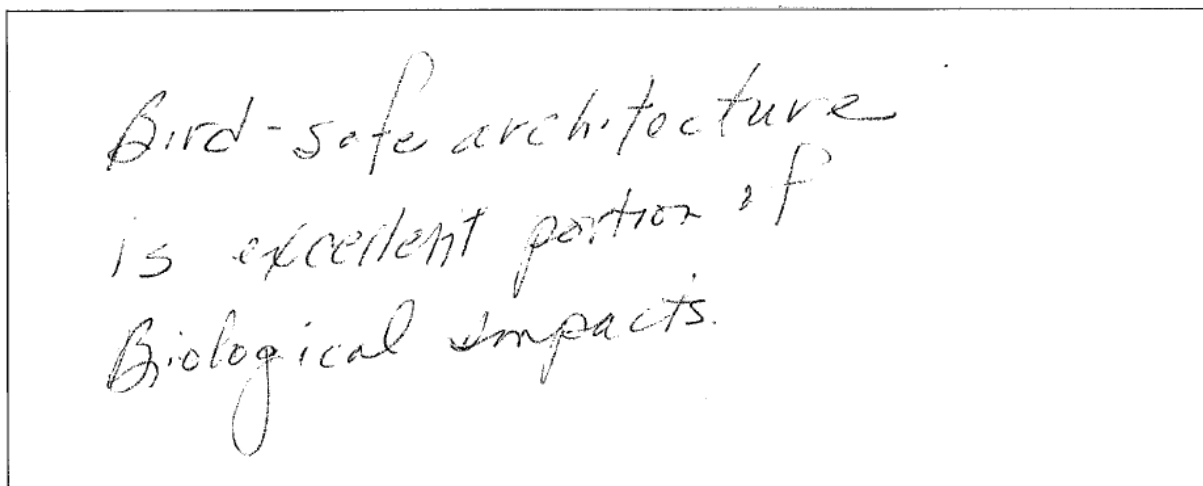 Bird-safe architecture
is excellent portion of
Biological impacts.